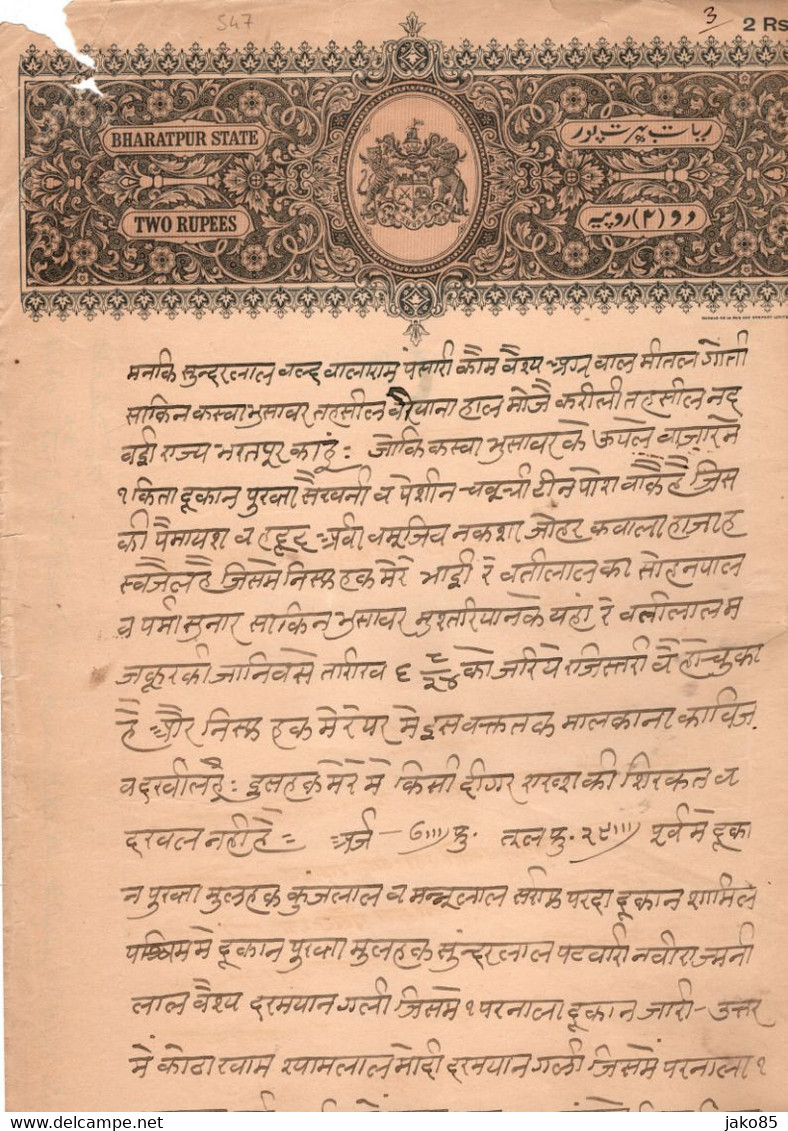 547
3
2 Rs
BHARATPUR STATE
ریاست بھرت پور
TWO RUPEES
دو (۲) روپیہ
मनकि सुन्दरलाल वल्द बालाराम पंसारी कौम वैश्य अग्रवाल मीतल गोती
साकिन कस्वा भुसावर तहसील वैर हाल मौजै करीली तहसील नद
वई राज्य भरतपुर का हूं: जोकि कस्वा भुसावर के ऊपले बाज़ार मे
१ किता दूकान पुख्ता व पेशीन टीन पोश वाकै है जिस
की पैमायश व हदूद व मूजिव नकशा जौहर कवाला हाजा ह
स्वजैल है जिसमे निस्फ़ हक मेरे भाई रेवतीलाल का सोहनपाल
व पर्मा सुनार साकिन भुसावर मुश्तरियान के यहां रेवतीलाल म
जकूर की जानिव से तारीख ६ को जरिये रजिस्तरी वै हो चुका
है और निस्फ़ हक मेरे पर मे इस वक्त तक मालकाना काविज़
व दखील हूं: इस हक मेरे मे किसी दीगर शख्श की शिरकत व
दखल नही है = अर्ज - फु. तूल फु. पूर्व मे दूका
न पुख्ता मुलहक कुंजलाल व मन्नूलाल सर्राफ परदा दूकान शामिल
पश्चिम मे दूकान पुख्ता मुलहक सुंन्दरलाल पटवारी
लाल वैश्य दरमयान गली जिसमे १ परनाला दूकान जारी - उत्तर
में कोठा खाम श्यामलाल मोदी दरमयान गली जिसमें परनाला १
jako85